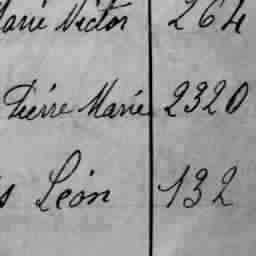 Marie Victor 264
Pierre Marie 2320
s Léon 132